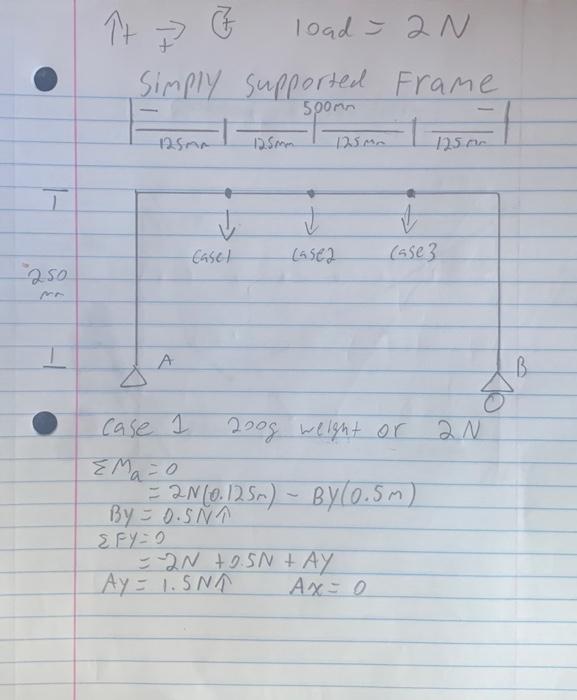 ↑+ →+ ↻+ load = 2N
Simply supported Frame
500mm
125mm 125mm 125mm 125mm
Case1 Case2 Case3
250
mm
A
B
Case 1 200g weight or 2N
ΣMa=0
= 2N(0.125m) - BY(0.5m)
BY = 0.5N↑
ΣFY=0
= -2N +0.5N + AY
AY = 1.5N↑ Ax = 0